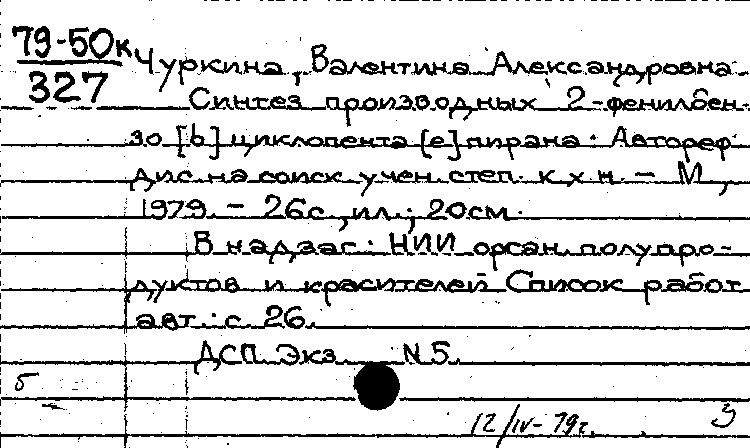 79-50к
327
Чуркина, Валентина Александровна.
Синтез производных 2-фенилбен-
зо [b] циклопента [e] пирана: Автореф.
дис. на соиск. учен. степ. к. х. н. - М.,
1979. - 26с., ил.; 20см.
В надзаг.: НИИ орган. полупро-
дуктов и красителей. Список работ
авт.: с. 26.
ДСП. Экз. N 5.
б
12/IV-79г.